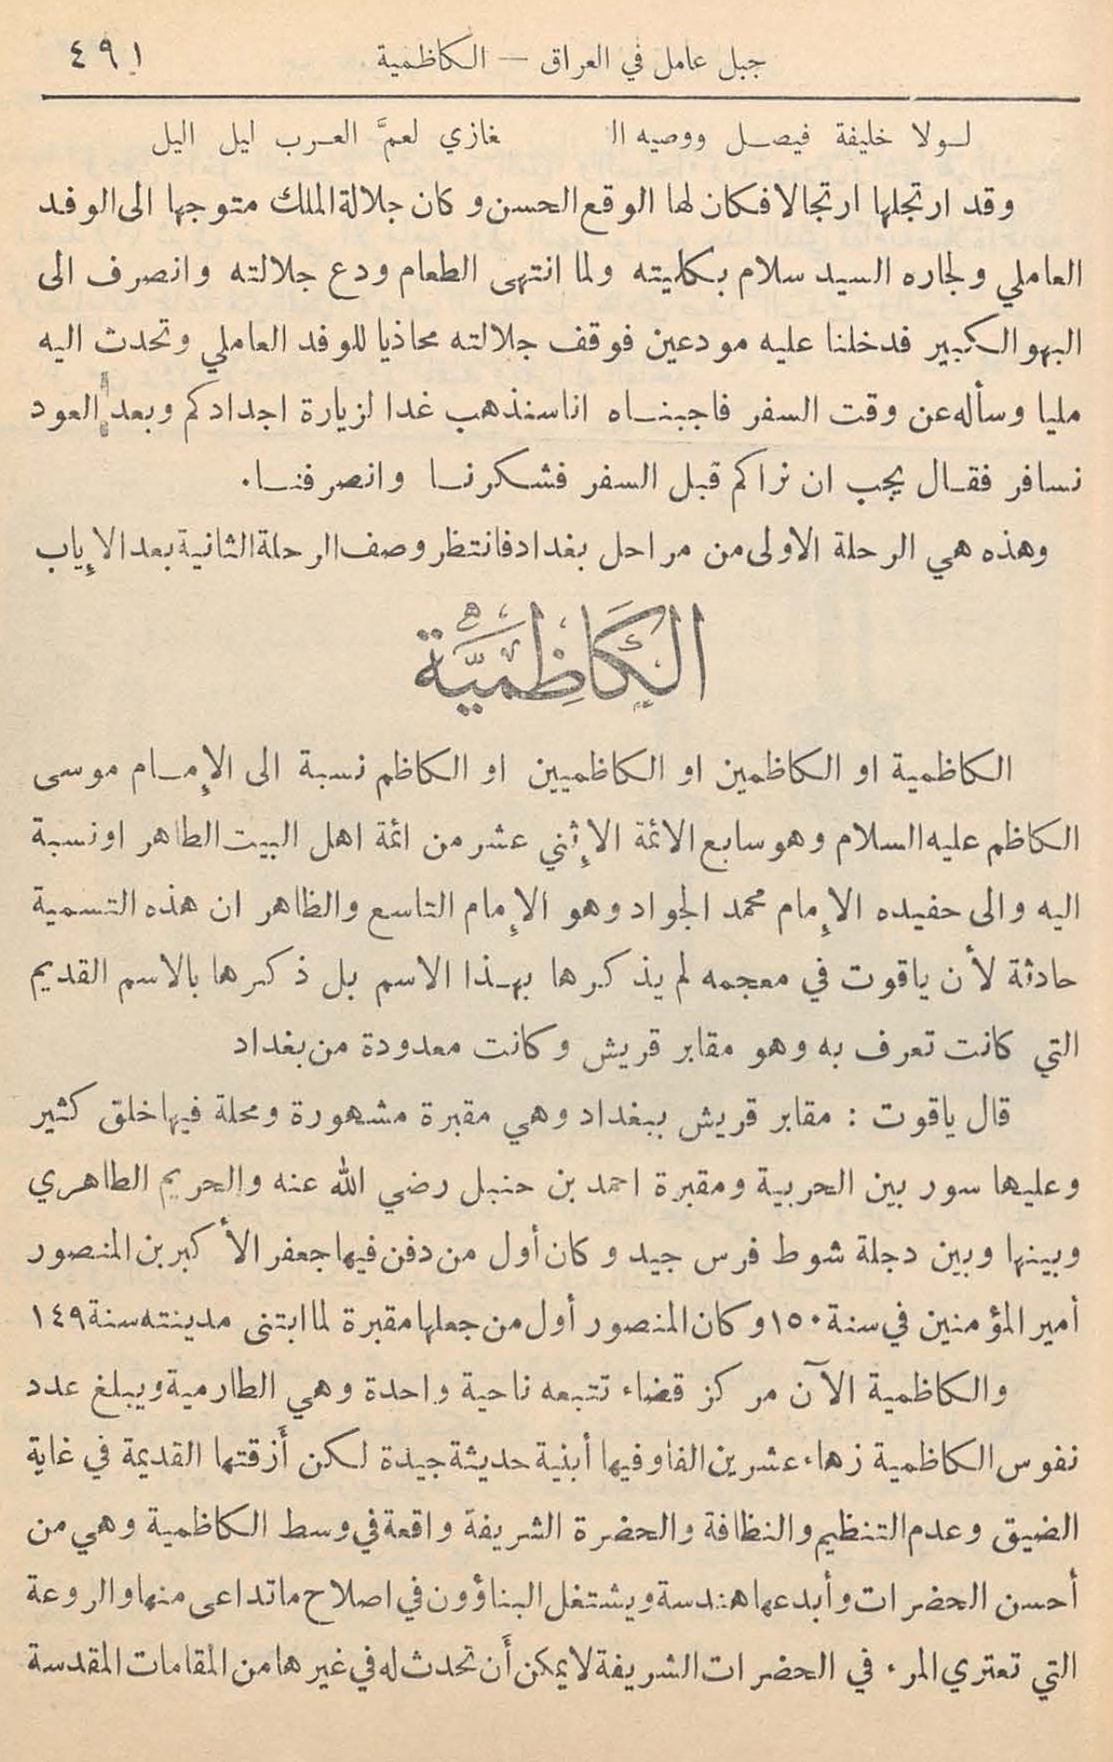 جبل عامل في العراق — الكاظمية ٤٩١
لـولا خليفة فيصـل ووصيه الـ غازي لعمَّ العـرب ليل اليل
وقد ارتجلها ارتجالا فكان لها الوقع الحسن وكان جلالة الملك متوجها الى الوفد
العاملي ولجاره السيد سلام بكليته ولما انتهى الطعام ودع جلالته وانصرف الى
البهو الكبير فدخلنا عليه مودعين فوقف جلالته محاذيا للوفد العاملي وتحدث اليه
مليا وسأله عن وقت السفر فاجبنـاه اناسنذهب غدا لزيارة اجدادكم وبعد العود
نسافر فقـال يجب ان نراكم قبل السفر فشكرنـا وانصرفنـا.
وهذه هي الرحلة الاولى من مراحل بغداد فانتظر وصف الرحلة الثانية بعد الإياب
الكَاظِمِيَّة
الكاظمية او الكاظمين او الكاظميين او الكاظم نسبة الى الإمـام موسى
الكاظم عليه السلام وهو سابع الائمة الإثني عشر من ائمة اهل البيت الطاهر او نسبة
اليه والى حفيده الإمام محمد الجواد وهو الإمام التاسع والظاهر ان هذه التسمية
حادثة لأن ياقوت في معجمه لم يذكرها بهـذا الاسم بل ذكرها بالاسم القديم
التي كانت تعرف به وهو مقابر قريش وكانت معدودة من بغداد
قال ياقوت : مقابر قريش ببغداد وهي مقبرة مشهورة ومحلة فيها خلق كثير
وعليها سور بين الحربية ومقبرة احمد بن حنبل رضي الله عنه والحريم الطاهري
وبينها وبين دجلة شوط فرس جيد وكان أول من دفن فيها جعفر الأكبر بن المنصور
أمير المؤمنين في سنة ١٥٠ وكان المنصور أول من جعلها مقبرة لما ابتنى مدينته سنة ١٤٩
والكاظمية الآن مركز قضاء تتبعه ناحية واحدة وهي الطارمية ويبلغ عدد
نفوس الكاظمية زهاء عشرين الفا وفيها أبنية حديثة جيدة لكن أَزقتها القديمة في غاية
الضيق وعدم التنظيم والنظافة والحضرة الشريفة واقعة في وسط الكاظمية وهي من
أحسن الحضرات وأبدعها هندسة ويشتغل البناؤون في اصلاح ماتداعى منها والروعة
التي تعتري المرء في الحضرات الشريفة لا يمكن أَن تحدث له في غيرها من المقامات المقدسة